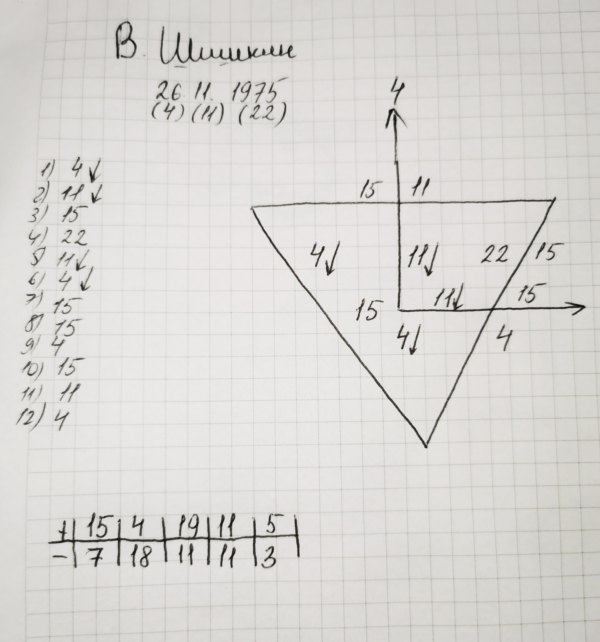 В. Шишкин
26 11. 1975
(4) (11) (22)
4
1) 4↓
2) 11↓
3) 15
4) 22
5) 11↓
6) 4↓
7) 15
8) 15
9) 4
10) 15
11) 11
12) 4
15 11
4↓ 11↓ 22 15
15 11↓ 15
4↓ 4
+ 15 4 19 11 5
- 7 18 11 11 3